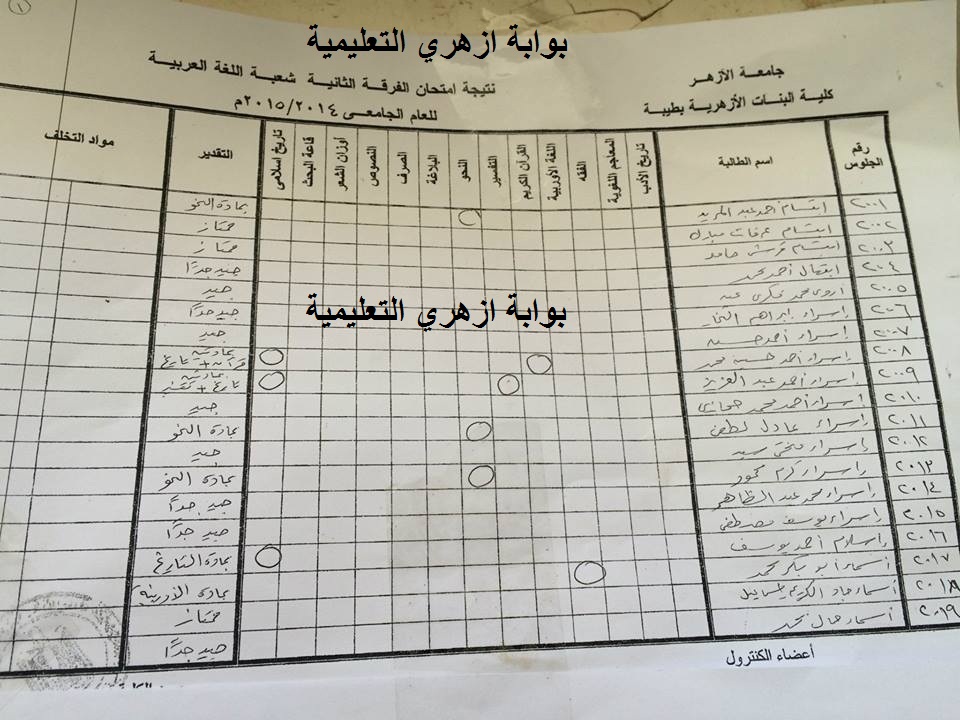 بوابة ازهري التعليمية
جامعة الأزهر
كلية البنات الأزهرية بطيبة
نتيجة امتحان الفرقة الثانية شعبة اللغة العربية
للعام الجامعى ٢٠١٥/٢٠١٤م
رقم الجلوس اسم الطالبة تاريخ الأدب المعاجم اللغوية الفقه اللغة الأوربية القرآن الكريم التفسير النحو البلاغة الصرف النصوص أوزان الشعر قاعة البحث تاريخ اسلامى التقدير مواد التخلف
٢٠٠١ ابتسام احمد عبد المريد بمادة النحو
٢٠٠٢ ابتسام عرفات مبارك ممتاز
٢٠٠٣ ابتسام قرشى حامد ممتاز
٢٠٠٤ ابتهال أحمد محمد جيد جدًا
٢٠٠٥ اروى محمد جيد
٢٠٠٦ إسراء ابراهيم جيد جدًا
بوابة ازهري التعليمية
٢٠٠٧ إسراء أحمد جيد
٢٠٠٨ إسراء احمد محمد بمادتى قرآن + تاريخ
٢٠٠٩ إسراء احمد عبد العزيز بمادتى تاريخ + تفسير
٢٠١٠ إسراء أحمد محمد حجازى جيد
٢٠١١ إسراء عادل لطفى بمادة النحو
٢٠١٢ إسراء فتحى سيد جيد
٢٠١٣ إسراء كرم محمود بمادة النحو
٢٠١٤ إسراء محمد عبد الظاهر جيد جدًا
٢٠١٥ إسراء يوسف مصطفى جيد جدًا
٢٠١٦ إسلام احمد يوسف بمادة التاريخ
٢٠١٧ أسماء أبو بكر محمد
٢٠١٨ أسماء جاد الكريم ممتاز
٢٠١٩ أسماء جمال محمد جيد جدًا
أعضاء الكنترول